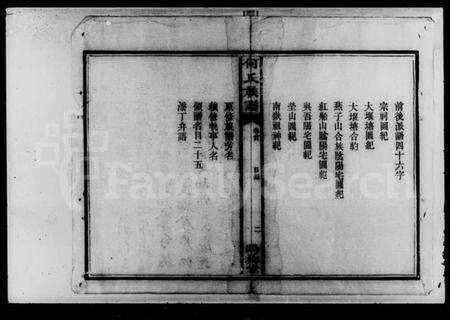 前後派語四十六字
宗祠圖紀
大堰塘圖紀
大堰塘合約
燕子山合族陰陽宅圖紀
紅船山陰陽宅圖紀
與吾陽宅圖紀
坐山圖紀
南嶽祖神紀
何氏族譜
卷首
目錄
二
原修族譜芳名
續修執事人名
領譜名目二十五
添丁弁語
FamilySearch